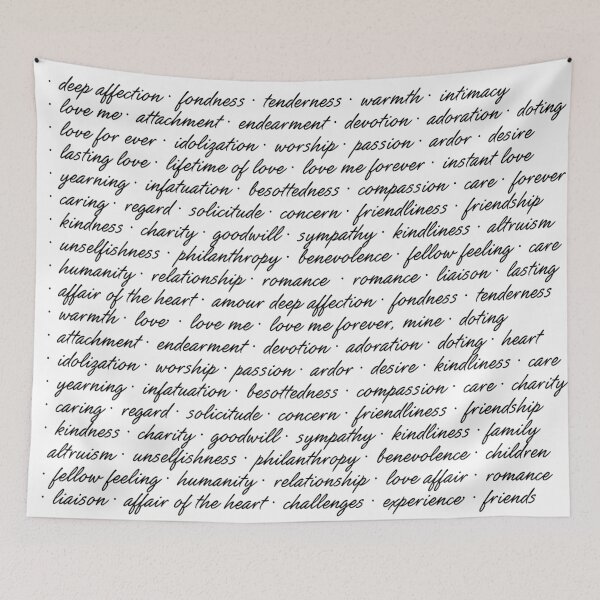 · deep affection · fondness · tenderness · warmth · intimacy
· love me · attachment · endearment · devotion · adoration · doting
· love for ever · idolization · worship · passion · ardor · desire
lasting love · lifetime of love · love me forever · instant love
· yearning · infatuation · besottedness · compassion · care · forever
caring · regard · solicitude · concern · friendliness · friendship
kindness · charity · goodwill · sympathy · kindliness · altruism
· unselfishness · philanthropy · benevolence · fellow feeling · care
humanity · relationship · romance · romance · liaison · lasting
· affair of the heart · amour deep affection · fondness · tenderness
· warmth · love · love me · love me forever, mine · doting
attachment · endearment · devotion · adoration · doting · heart
· idolization · worship · passion · ardor · desire · kindliness · care
· yearning · infatuation · besottedness · compassion · care · charity
caring · regard · solicitude · concern · friendliness · friendship
· kindness · charity · goodwill · sympathy · kindliness · family
altruism · unselfishness · philanthropy · benevolence · children
· fellow feeling · humanity · relationship · love affair · romance
· liaison · affair of the heart · challenges · experience · friends